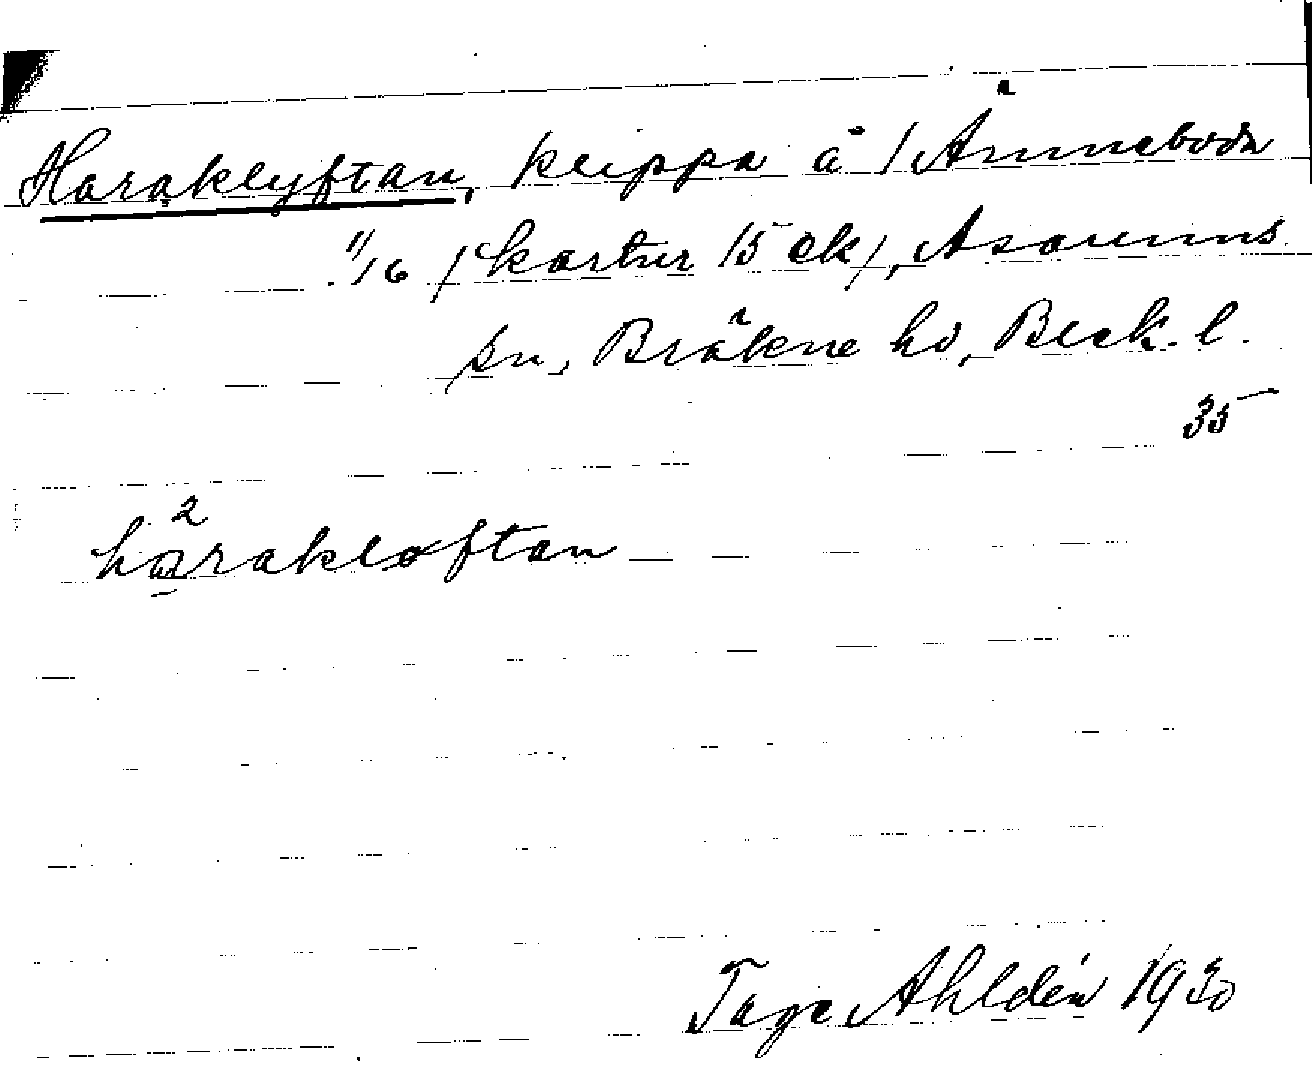 Haraklyftan, klippa å / Änneboda
1/16 / kartur 15 ek /, Asarums
sn, Bräkne hd, Blek. l.
35
2
harakløftan
Tage Ahldén 1930